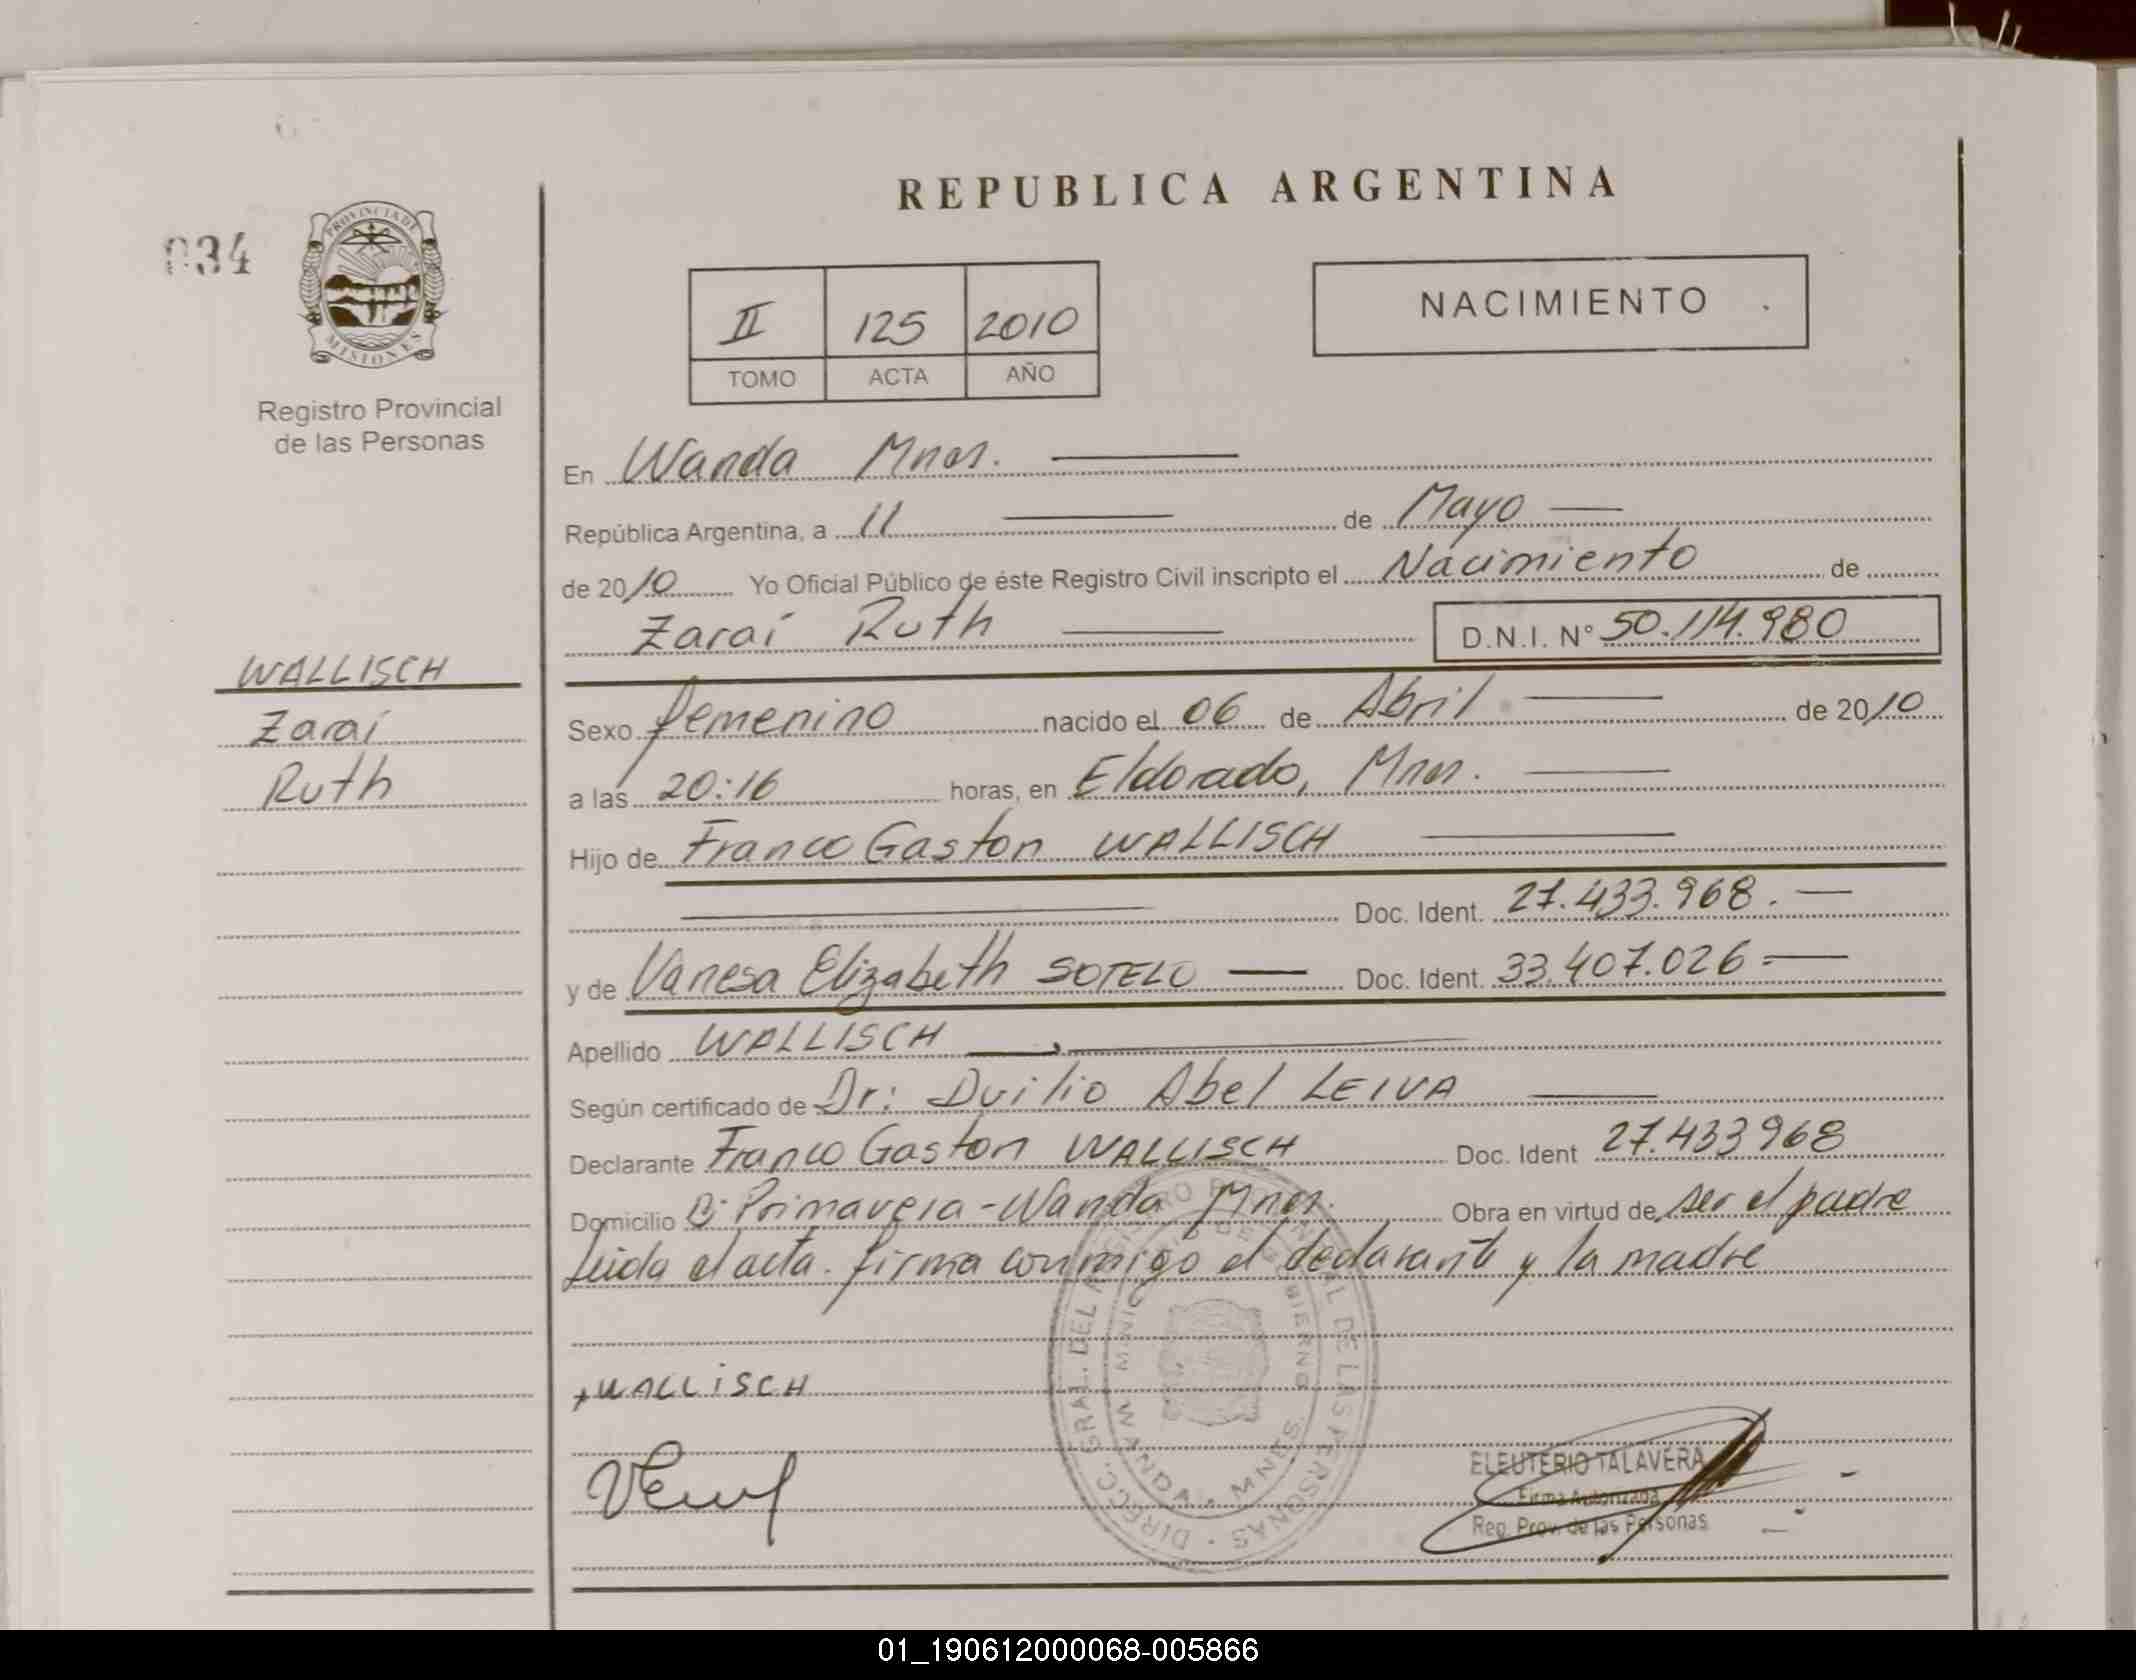 REPUBLICA ARGENTINA
034
PROVINCIA DE
MISIONES
Registro Provincial
de las Personas
II 125 2010
TOMO ACTA AÑO
NACIMIENTO
En Wanda Mnes.
República Argentina, a 11 de Mayo
de 2010 Yo Oficial Público de éste Registro Civil inscripto el Nacimiento de
Zaraí Ruth D.N.I. N° 50.114.980
WALLISCH
Zaraí
Ruth
Sexo femenino nacido el 06 de Abril de 2010
a las 20:16 horas, en Eldorado, Mnes.
Hijo de Franco Gaston WALLISCH
Doc. Ident. 27.433.968.
y de Vanesa Elizabeth SOTELO Doc. Ident. 33.407.026
Apellido WALLISCH
Según certificado de Dr: Duilio Abel LEIVA
Declarante Franco Gaston WALLISCH Doc. Ident 27.433968
Domicilio B: Primavera - Wanda Mnes. Obra en virtud de ser el padre
Leida el acta. firma conmigo el declarante y la madre
WALLiSCH
DIRECC. GRAL. DEL REGISTRO PROVINCIAL DE LAS PERSONAS
WANDA MNES
ELEUTERIO TALAVERA
Firma Autorizada
Reg. Prov. de las Personas
01_190612000068-005866